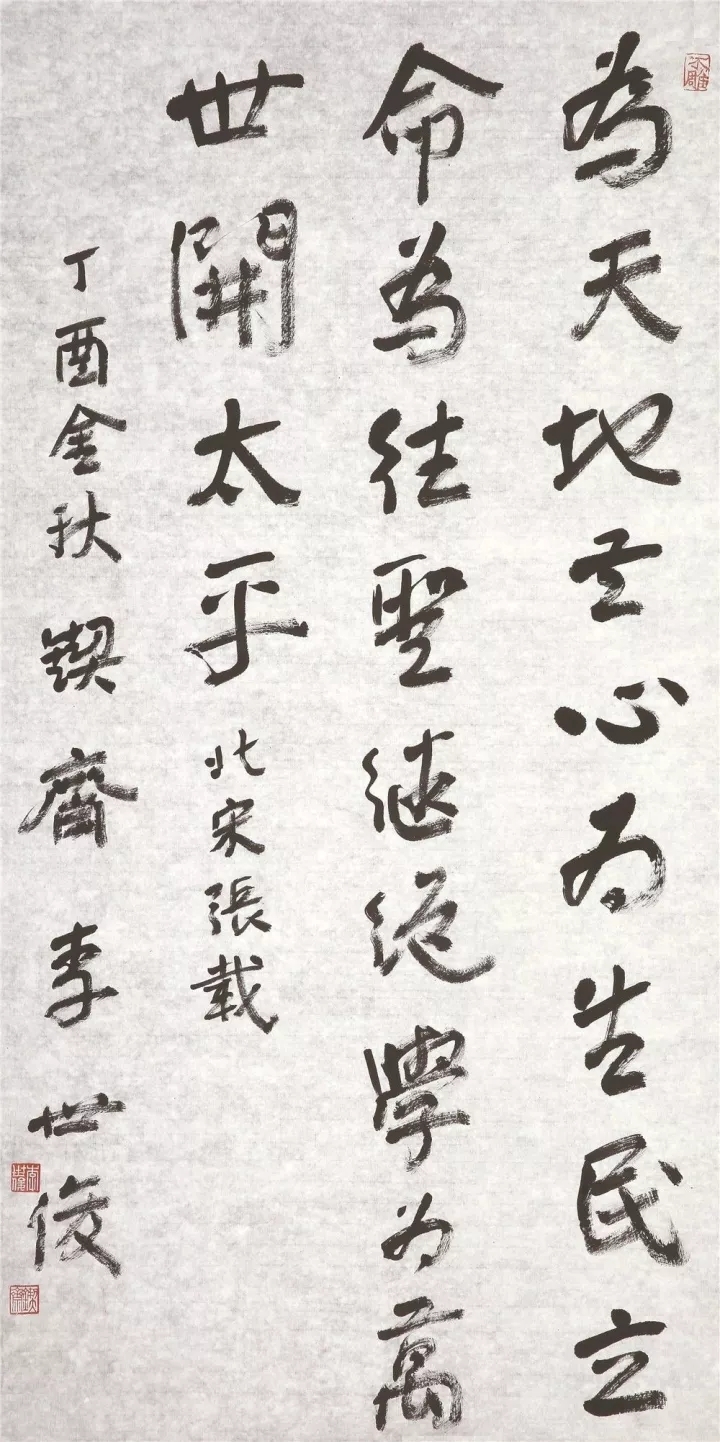 為天地立心为生民立
命為往聖继绝學为萬
世開太平 北宋張載
丁酉金秋 鍥齋 李世俊